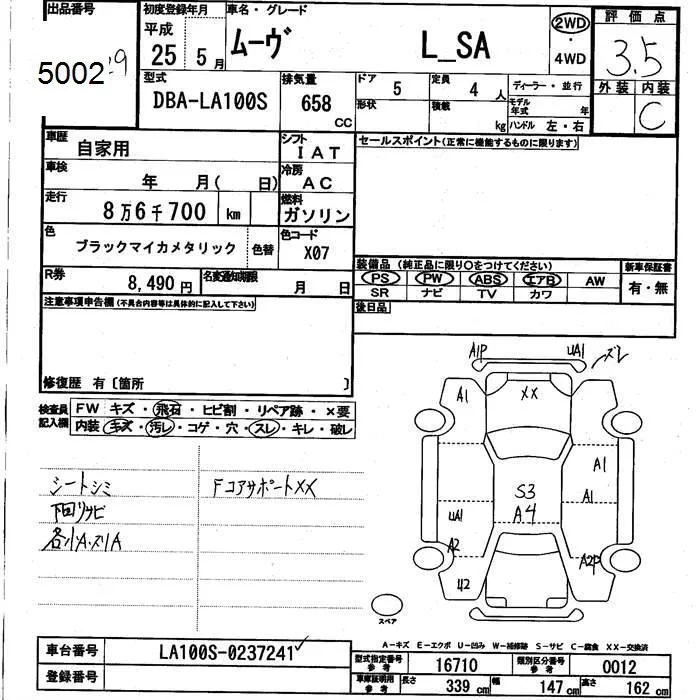 出品番号
50029
初度登録年月
平成
25 5月
車名・グレード
ムーヴ L_SA
2WD
・
4WD
評価点
3.5
外装 内装
C
型式
DBA-LA100S
排気量
658
cc
ドア 5
定員 4 人
形状
積載 kg
ディーラー・並行
モデル年式 年
ハンドル 左・右
車歴
自家用
シフト
IAT
セールスポイント(正常に機能するものに限ります)
車検
年 月( 日)
冷房
AC
走行
8万6千700 km
燃料
ガソリン
色
ブラックマイカメタリック
色替
色コード
X07
R券
8,490円
名変通知期限
月 日
装備品(純正品に限り○をつけてください)
PS PW ABS エアB AW
SR ナビ TV カワ
新車保証書
有・無
後日品
注意事項申告欄(不具合内容等は具体的に記入して下さい)
修復歴 有〔箇所 〕
検査員
記入欄
FW キズ・飛石・ヒビ割・リペア跡・×要
内装 キズ・汚レ・コゲ・穴・スレ・キレ・破レ
シートシミ
下回リサビ
各小A・スリA
FコアサポートXX
A1P
UA1
ズレ
A1
XX
A1
A1
S3
A4
UA1
A2
A2P
U2
スペア
A-キズ E-エクボ U-凹み W-補修跡 S-サビ C-腐食 XX-交換済
車台番号
LA100S-0237241
登録番号
型式指定番号
参考
16710
類別区分番号
参考
0012
車庫証明用
参考
長さ 339 cm
幅 147 cm
高さ 162 cm